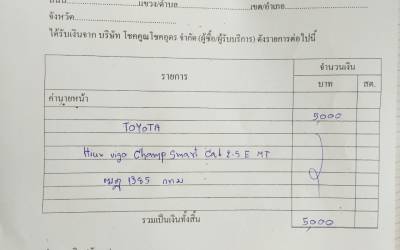 แขวง/ตำบล เขต/อำเภอ
จังหวัด
ได้รับเงินจาก บริษัท โชคคูณโชคอุดร จำกัด (ผู้ซื้อ/ผู้รับบริการ) ดังรายการต่อไปนี้
รายการ จำนวนเงิน
บาท สต.
ค่านายหน้า 5,000
TOYOTA
Hilux vigo Champ Smart Cab 2.5 E MT
1385 กทม
รวมเป็นเงินทั้งสิ้น 5,000